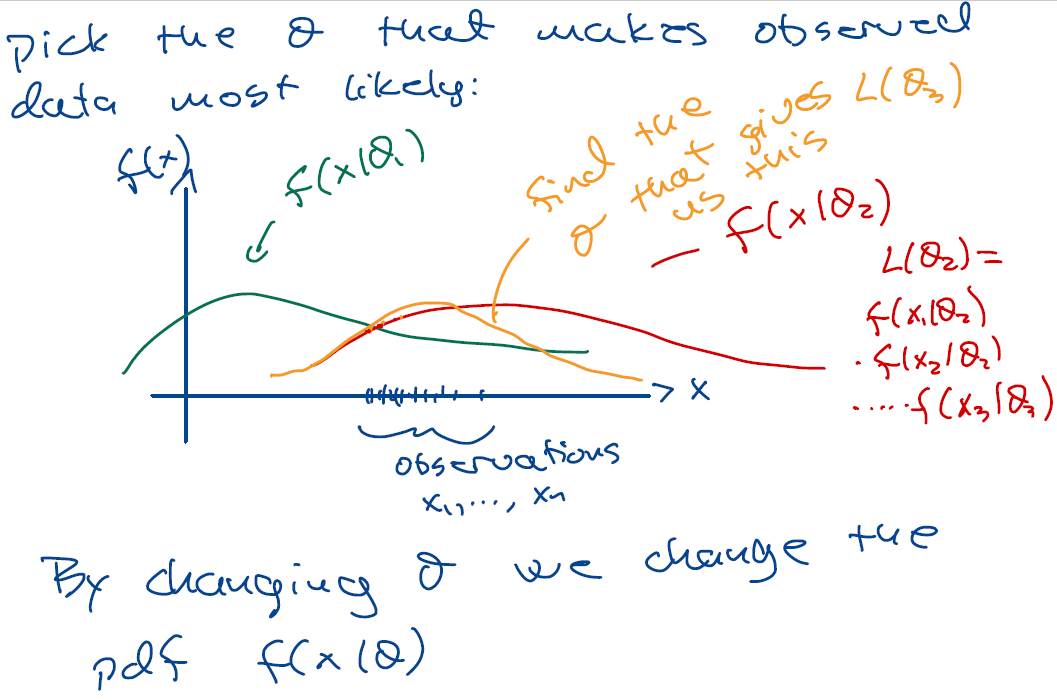 pick the θ that makes observed
data most likely:
f(x)
f(x|θ₁)
find the
θ that gives L(θ₃)
us this
f(x|θ₂)
L(θ₂) =
f(x₁|θ₂)
· f(x₂|θ₂)
..... f(x₃|θ₃)
x
observations
x₁, ..., xₙ
By changing θ we change the
pdf f(x|θ)